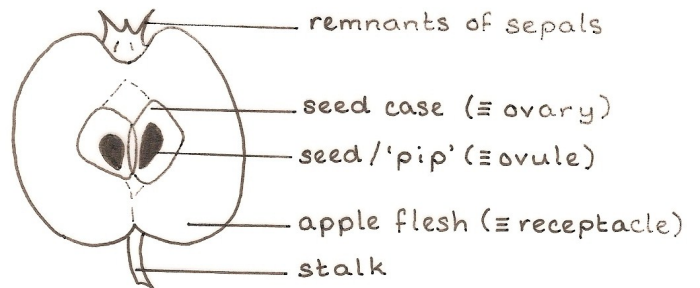 remnants of sepals
seed case (≡ ovary)
seed/'pip' (≡ ovule)
apple flesh (≡ receptacle)
stalk